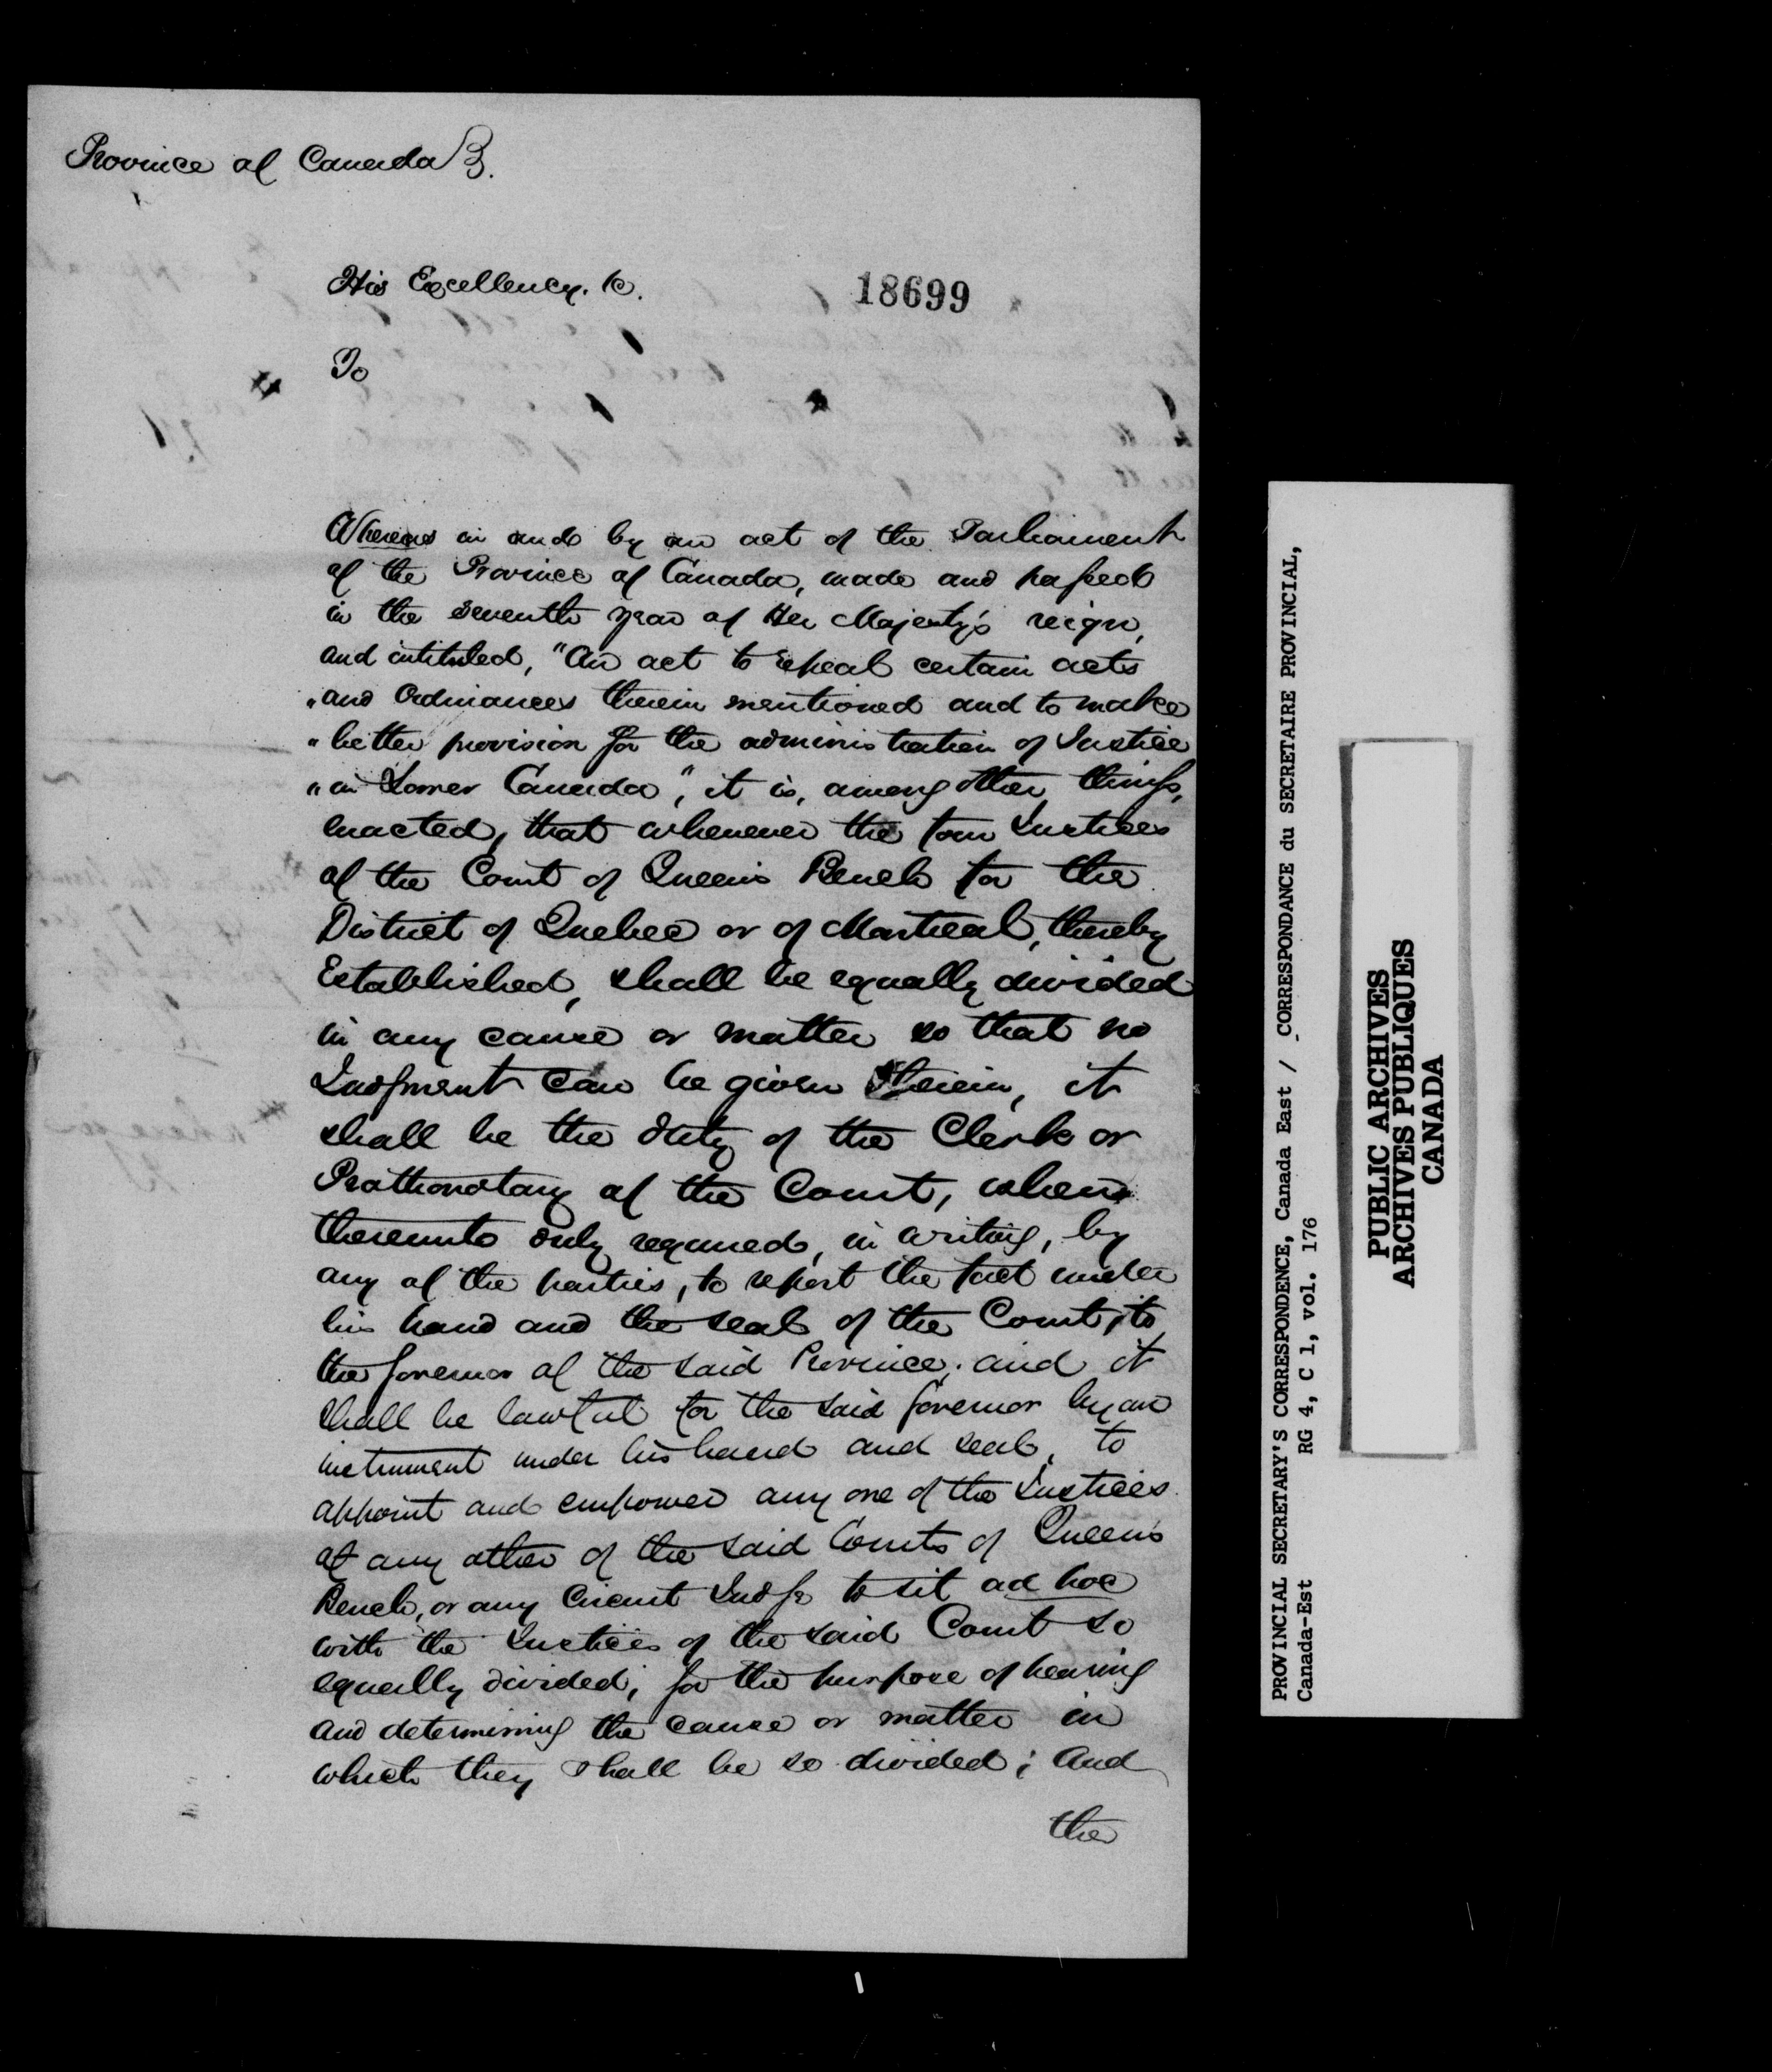 Province of Canada }.
His Excellency. &c.
18699
To
Whereas in and by an act of the Parliament
of the Province of Canada, made and passed
in the seventh year of Her Majesty's reign,
and intituled, "An act to repeal certain acts
"and Ordinances therein mentioned and to make
"better provision for the administration of Justice
"in Lower Canada", it is, among other things,
enacted, that whenever the four Justices
of the Court of Queen's Bench for the
District of Quebec or of Montreal, thereby
Established, shall be equally divided
in any cause or matter so that no
Judgment can be given therein, it
shall be the duty of the Clerk or
Prothonotary of the Court, when
thereunto duly required, in writing, by
any of the parties, to report the fact under
his hand and the seal of the Court, to
the Governor of the said Province; and it
shall be lawful for the said Governor by an
instrument under his hand and seal, to
appoint and empower any one of the Justices
of any other of the said Courts of Queen's
Bench, or any Circuit Judge to sit ad hoc
with the Justices of the said Court so
equally divided, for the purpose of hearing
and determining the cause or matter in
which they shall be so divided; And
the
PROVINCIAL SECRETARY'S CORRESPONDENCE, Canada East / CORRESPONDANCE du SECRETAIRE PROVINCIAL,
Canada-Est RG 4, C 1, vol. 176
PUBLIC ARCHIVES
ARCHIVES PUBLIQUES
CANADA